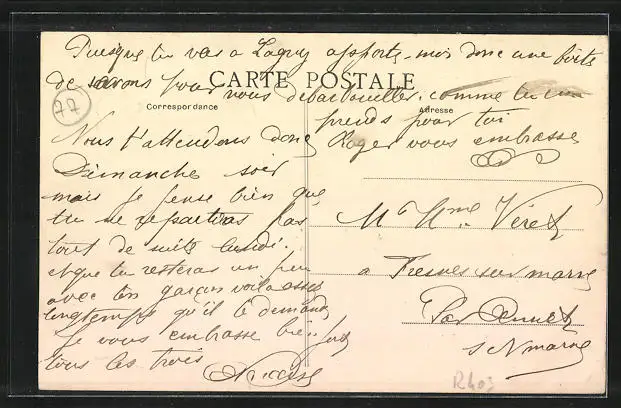 Puisque tu vas a Lagny apporte-moi donc une boite
de savons pour nous débarbouiller. comme tu en
CARTE POSTALE
prends pour toi
Correspondance
Adresse
77
Roger vous embrasse
Nous t'attendons donc
Dimanche soir
mais je pense bien que
tu ne repartiras pas
tout de suite lundi.
et que tu resteras un peu
avec ton garçon voila assez
longtemps qu'il le demande
Je vous embrasse bien fort
tous les trois
Mr & Mme Véret
a Fresnes sur marne
Par Annet
s/ marne